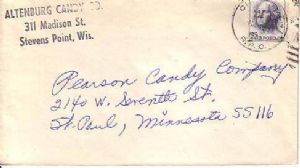 ALTENBURG CANDY CO.
311 Madison St.
Stevens Point, Wis.
Pearson Candy Company
2140 W. Seventh St.
St. Paul, Minnesota 55116